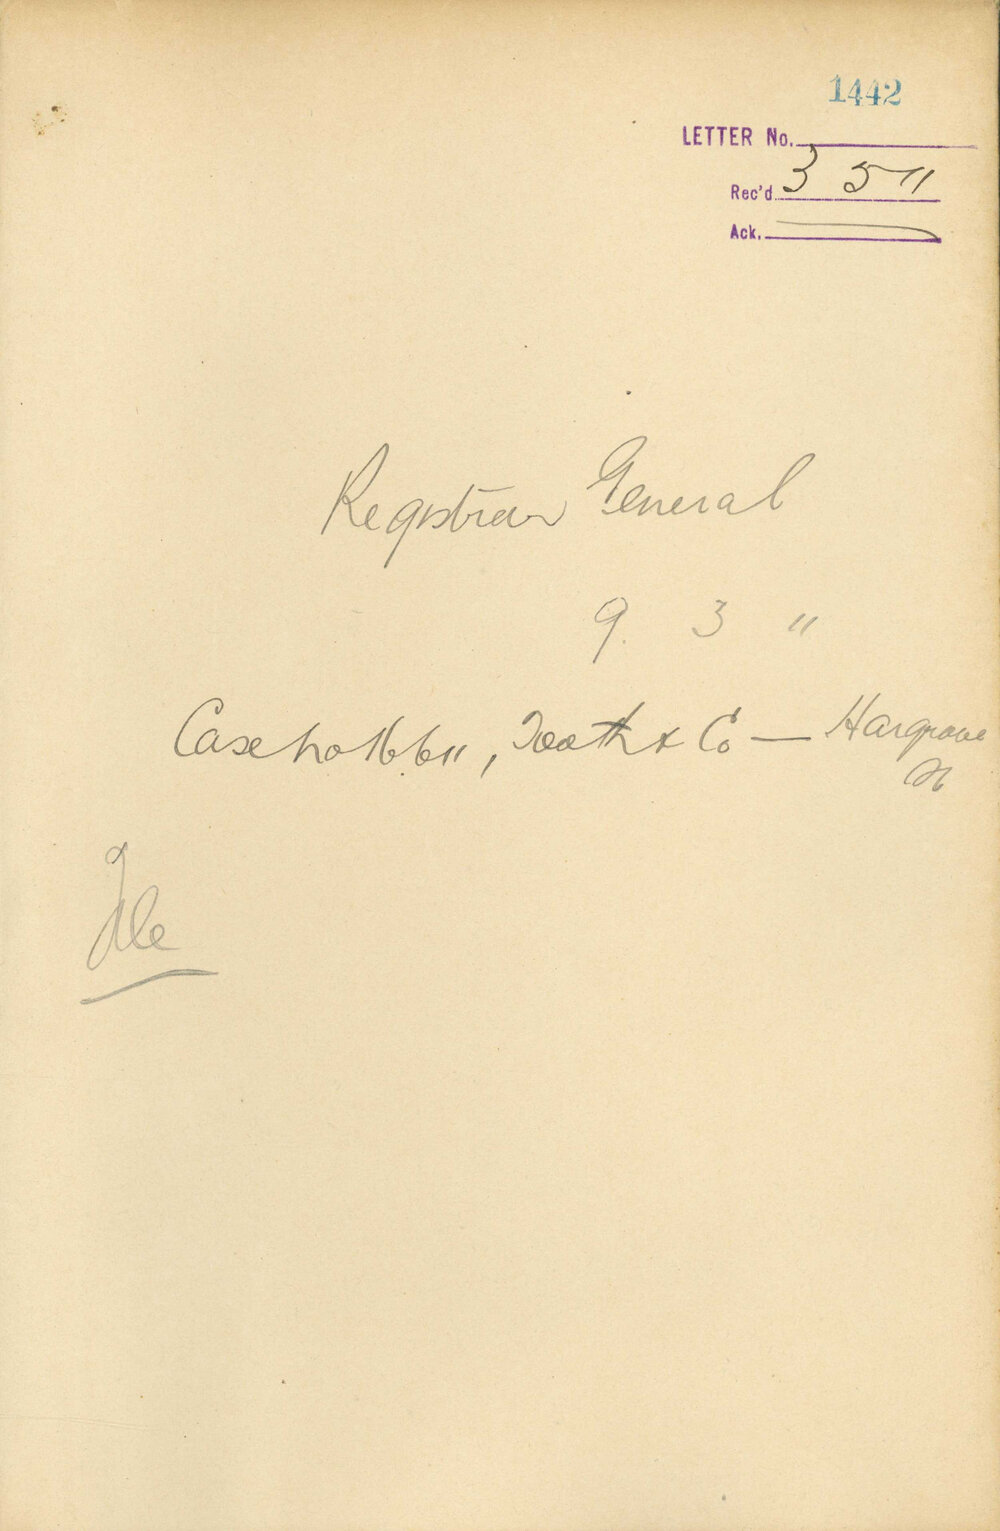 1442
LETTER No.
Rec'd. 3 5 11
Ack.
Registrar General
9. 3 11
Case no 16611, Tooth & Co — Hargrove
File